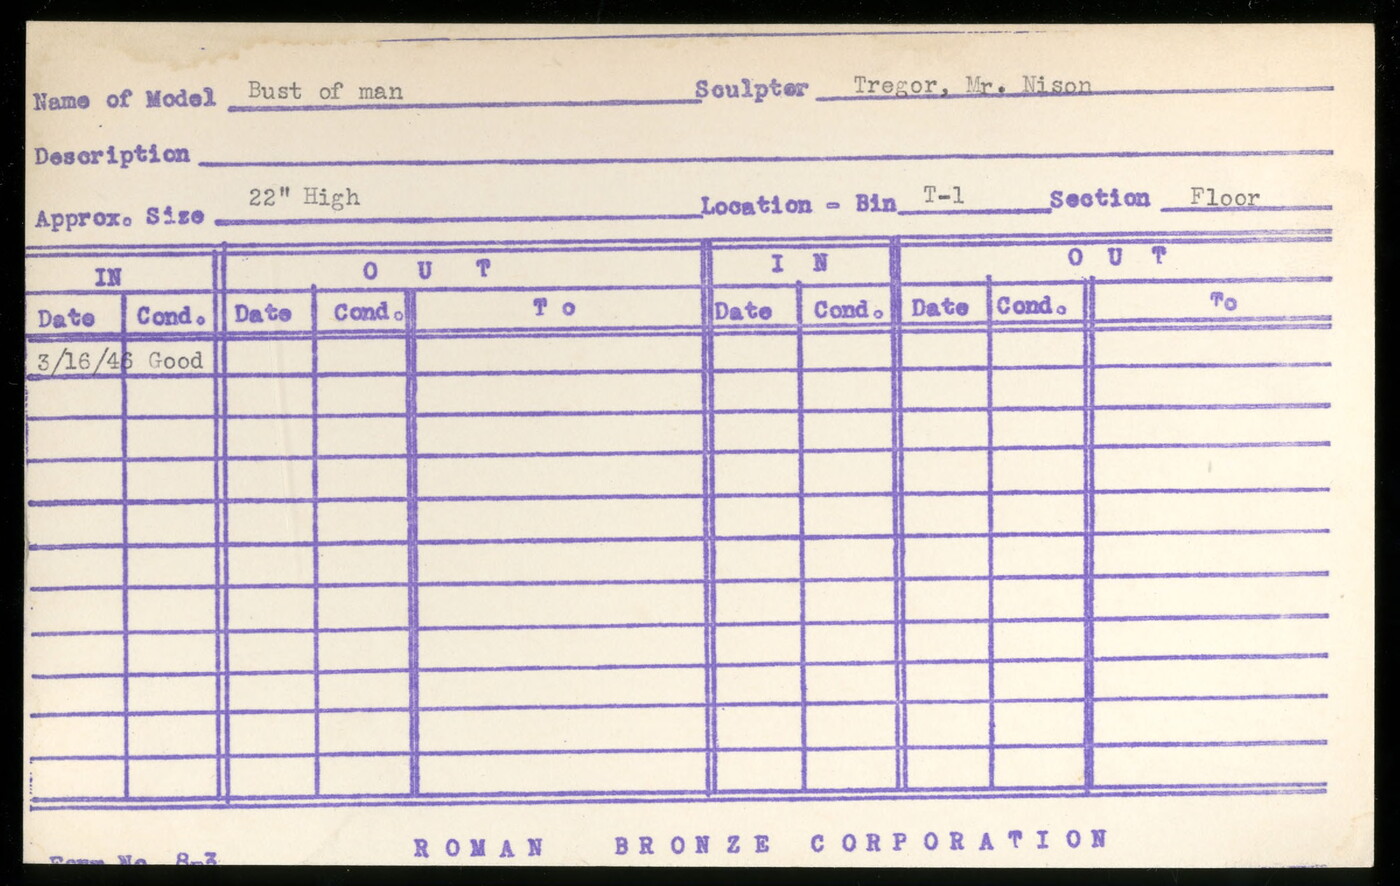 Name of Model Bust of man Sculptor Tregor, Mr. Nison
Description
Approx. Size 22" High Location - Bin T-1 Section Floor
IN O U T I N O U T
Date Cond. Date Cond. T o Date Cond. Date Cond. To
3/16/46 Good
Form No. 8-3
ROMAN BRONZE CORPORATION